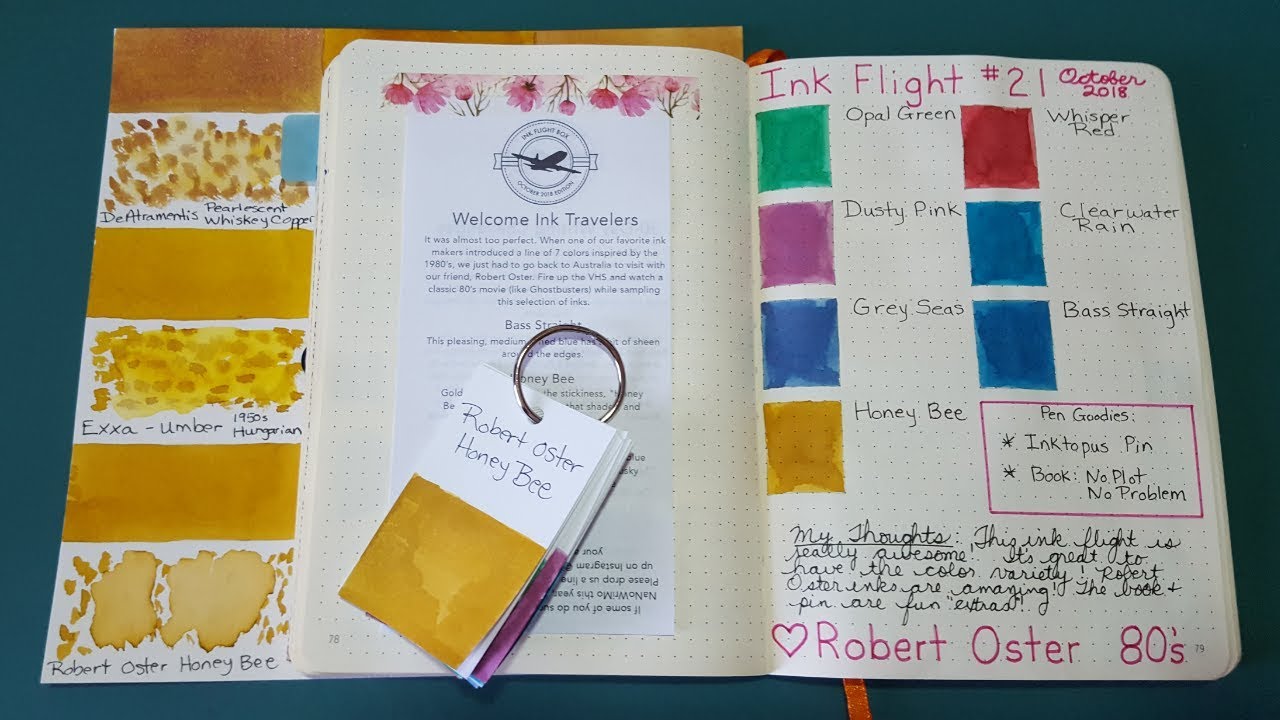 DeAtramentis Pearlescent
Whiskey Copper
Exxa - Umber 1950s
Hungarian
Robert Oster Honey Bee
INK FLIGHT BOX
OCTOBER 2018 EDITION
Welcome Ink Travelers
It was almost too perfect. When one of our favorite ink
makers introduced a line of 7 colors inspired by the
1980's, we just had to go back to Australia to visit with
our friend, Robert Oster. Fire up the VHS and watch a
classic 80's movie (like Ghostbusters) while sampling
this selection of inks.
Bass Straight
This pleasing, medium of sheen
around the edges.
Honey Bee
Gold the stickiness, "Honey
Be that shades and
If some of you do
NaNoWriMo this year
Please drop us a line
up on Instagram
your
78
Robert Oster
Honey Bee
Ink Flight #21 October
2018
Opal Green
Whisper
Red
Dusty Pink
Clearwater
Rain
Grey Seas
Bass Straight
Honey Bee
Pen Goodies:
* Inktopus Pin
* Book: No Plot
No Problem
My Thoughts: This ink flight is
really awesome! It's great to
have the color variety! Robert
Oster inks are amazing! The book +
pin are fun "extras"!
♡ Robert Oster 80's
79